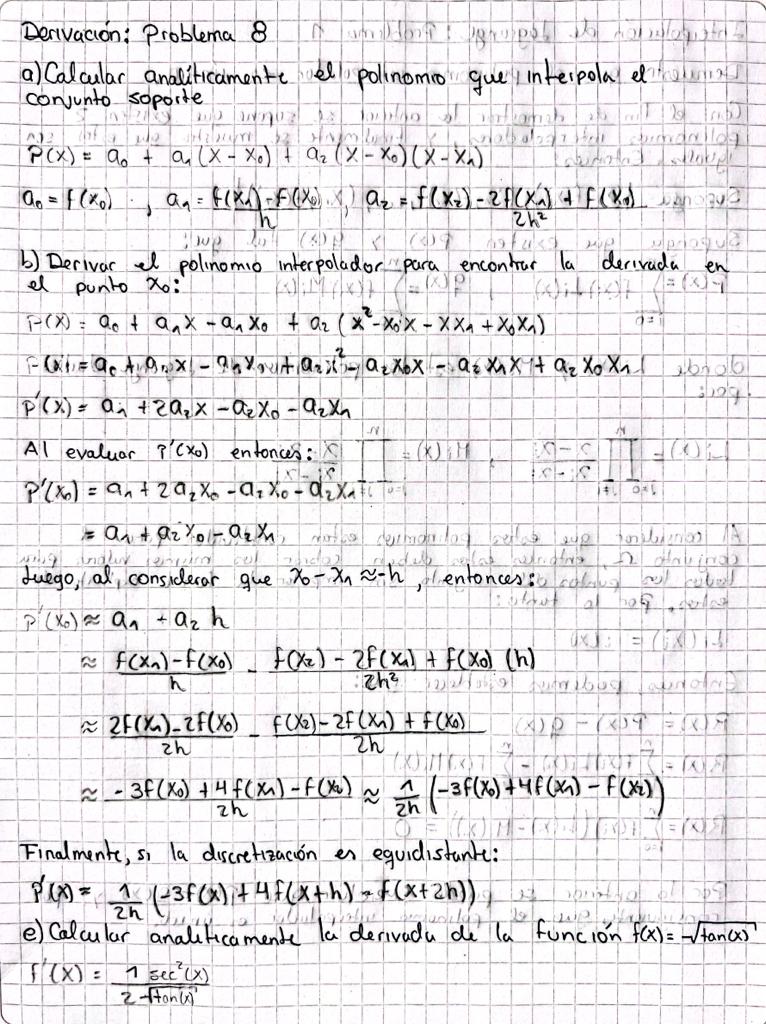 Derivación: Problema 8
a) Calcular analíticamente el polinomio que interpola el
conjunto soporte
P(x) = a₀ + a₁(x - x₀) + a₂(x - x₀)(x - x₁)
a₀ = f(x₀) , a₁ = (f(x₁) - f(x₀))/h , a₂ = (f(x₂) - 2f(x₁) + f(x₀))/2h²
b) Derivar el polinomio interpolador para encontrar la derivada en
el punto x₀:
P(x) = a₀ + a₁x - a₁x₀ + a₂(x² - x₀x - xx₁ + x₀x₁)
P(x) = a₀ + a₁x - a₁x₀ + a₂x² - a₂x₀x - a₂x₁x + a₂x₀x₁
P'(x) = a₁ + 2a₂x - a₂x₀ - a₂x₁
Al evaluar P'(x₀) entonces:
P'(x₀) = a₁ + 2a₂x₀ - a₂x₀ - a₂x₁
= a₁ + a₂x₀ - a₂x₁
Luego, al considerar que x₀ - x₁ ≈ -h, entonces:
P'(x₀) ≈ a₁ - a₂ h
≈ (f(x₁) - f(x₀))/h - (f(x₂) - 2f(x₁) + f(x₀))/2h² (h)
≈ (2f(x₁) - 2f(x₀))/2h - (f(x₂) - 2f(x₁) + f(x₀))/2h
≈ (-3f(x₀) + 4f(x₁) - f(x₂))/2h ≈ 1/2h (-3f(x₀) + 4f(x₁) - f(x₂))
Finalmente, si la discretización es equidistante:
P'(x) = 1/2h (-3f(x) + 4f(x+h) - f(x+2h))
e) Calcular analíticamente la derivada de la función f(x) = √tan(x)
f'(x) = 1 sec²(x)/2√tan(x)